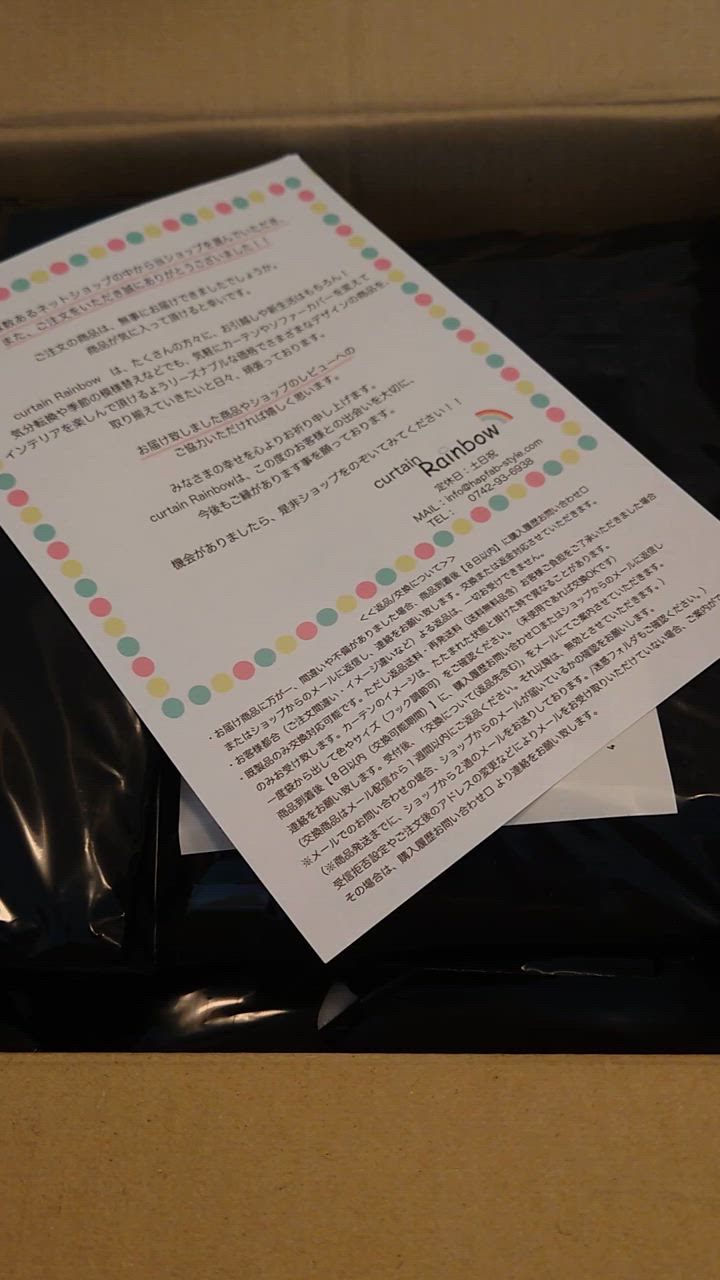 数あるネットショップの中から当ショップを選んでいただき、
また、ご注文をいただき誠にありがとうございました！！
ご注文の商品は、無事にお届けできましたでしょうか。
商品が気に入って頂けると幸いです。
curtain Rainbow は、たくさんの方々に、お引越しや新生活はもちろん！
気分転換や季節の模様替えなどでも、気軽にカーテンやソファーカバーを変えて
インテリアを楽しんで頂けるようリーズナブルな価格でさまざまなデザインの商品を、
取り揃えていきたいと日々、頑張っております。
お届け致しました商品やショップのレビューへの
ご協力いただければ嬉しく思います。
みなさまの幸せを心よりお祈り申し上げます。
curtain Rainbowは、この度のお客様との出会いを大切に、
今後もご縁があります事を願っております。
機会がありましたら、是非ショップをのぞいてみてください！！
curtain Rainbow
定休日：土日祝
MAIL：info@hapfab-style.com
TEL： 0742-93-6938
<<返品/交換について>>
・お届け商品に万が一、間違いや不備がありました場合、商品到着後【8日以内】に購入履歴お問い合わせ口
またはショップからのメールに返信し、連絡をお願い致します。交換または返金対応させていただきます。
・お客様都合（ご注文間違い・イメージ違いなど）よる返品は、一切お受けできません。
・既製品のみ交換対応可能です。ただし返品送料・再発送料（送料無料品含）お客様ご負担をご了承いただきました場合
のみお受け致します。カーテンのイメージは、たたまれた状態と掛けた時で異なることがあります。
一度袋から出して色やサイズ（フック調節可）をご確認ください。（未使用であれば交換OKです）
商品到着後【8日以内（交換可能期間）】に、購入履歴お問い合わせ口またはショップからのメールに返信し
連絡をお願い致します。受付後、「交換について(返品先含む)」をメールにてご案内させていただきます。
(交換商品はメール配信から1週間以内にご返品ください。それ以降は、無効とさせていただきます。)
※メールでのお問い合わせの場合、ショップからのメールが届いているかの確認をお願いします。
(※商品発送までに、ショップから2通のメールをお送りしております。/迷惑フォルダもご確認ください。)
受信拒否設定やご注文後のアドレスの変更などによりメールをお受け取りいただけない場合、ご案内が
その場合は、購入履歴お問い合わせ口 より連絡をお願い致します。